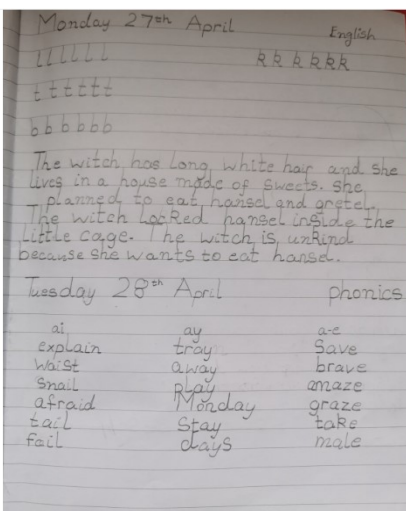 Monday 27th April English
l l l l l l k k k k k k
t t t t t t
b b b b b b
The witch has long, white hair and she
lives in a house made of sweets. She
planned to eat hansel and gretel.
The witch locked hansel inside the
little cage. The witch is unkind
because she wants to eat hansel.
Tuesday 28th April phonics
ai ay a-e
explain tray save
waist away brave
snail play amaze
afraid Monday graze
tail stay take
fail days male